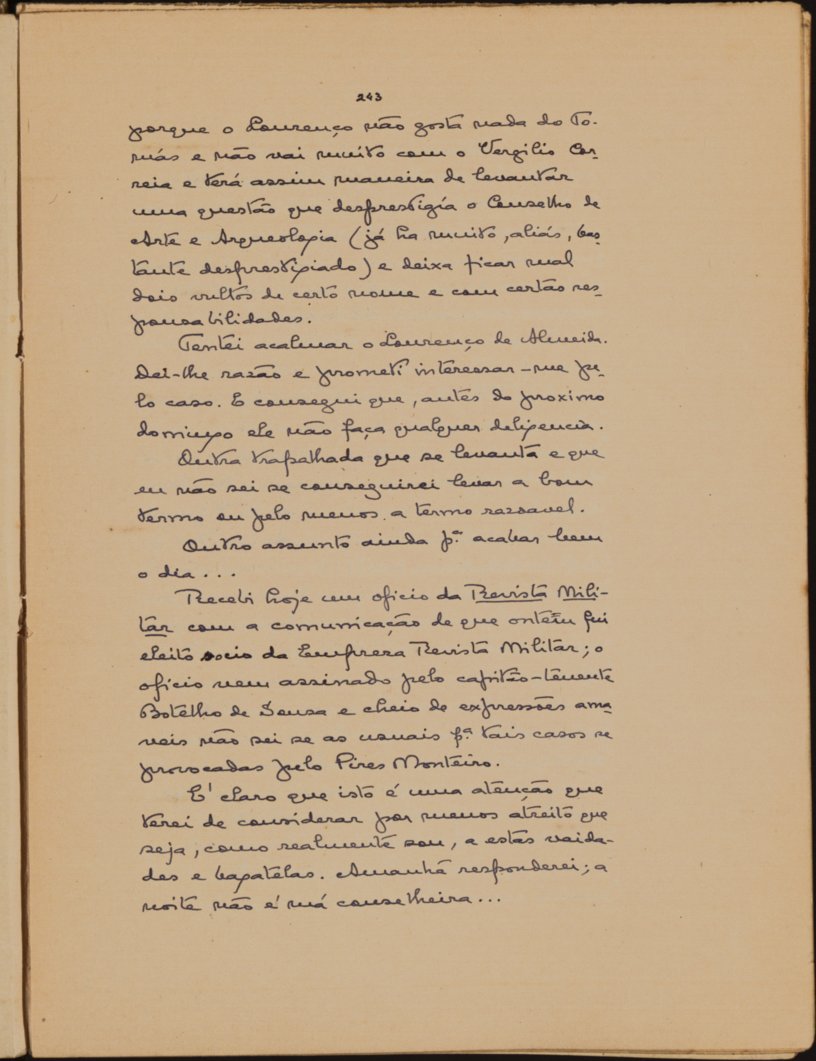 243
porque o Lourenço não gosta nada do To-
más e não vai muito com o Vergilio Cor-
reia e terá assim maneira de levantar
uma questão que desprestigía o Conselho de
Arte e Arqueologia (já ha muito, aliás, bas-
tante desprestigiado) e deixa ficar mal
dois vultos de certo nome e com certas res-
ponsabilidades.
Tentei acalmar o Lourenço de Almeida.
Dei-lhe razão e prometi interessar-me pe-
lo caso. E consegui que, antes do proximo
domingo ele não faça qualquer deligencia.
Outra trapalhada que se levanta e que
eu não sei se conseguirei levar a bom
termo ou pelo menos a termo razoavel.
Outro assunto ainda p.ª acabar bem
o dia...
Recebi hoje um oficio da Revista Mili-
tar com a comunicação de que ontem fui
eleito socio da Empreza Revista Militar; o
oficio vem assinado pelo capitão-tenente
Botelho de Sousa e cheio de expressões ama-
veis não sei se as usuais p.ª tais casos se
provocadas pelo Pires Monteiro.
E' claro que isto é uma atenção que
terei de considerar por menos atreito que
seja, como realmente sou, a estas vaida-
des e bagatelas. Amanhã responderei; a
noite não é má conselheira...